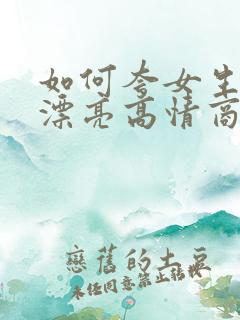 如何夸女生
漂亮高情商
戀舊的土豆
未经同意禁止转载